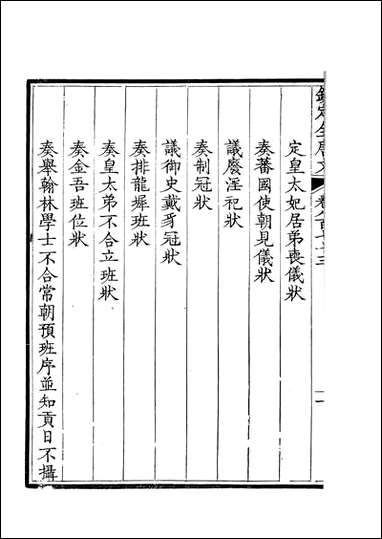 欽定全唐文 卷八百七十三 一
定皇太妃居弟喪儀狀
奏蕃國使朝見儀狀
議廢淫祀狀
奏制冠狀
議御史戴豸冠狀
奏排龍墀班狀
奏皇太弟不合立班狀
奏金吾班位狀
奏舉翰林學士不合常朝預班序並知貢日不攝